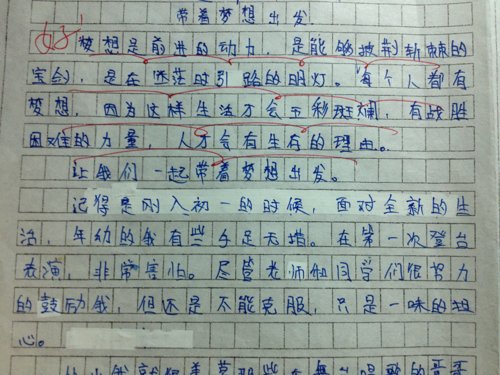 带着梦想出发.
好 梦想是前进的动力,是能够披荆斩棘的
宝剑,是在迷茫时引路的明灯。每个人都有
梦想,因为这样生活才会五彩斑斓,有战胜
困难的力量,人才会有生存的理由。
让我们一起带着梦想出发。
记得是刚入初一的时候,面对全新的生
活,年幼的我有些手足无措。在第一次登台
表演,非常害怕。尽管老师和同学们很努力
的鼓励我,但还是不能克服,只是一味的担
心。